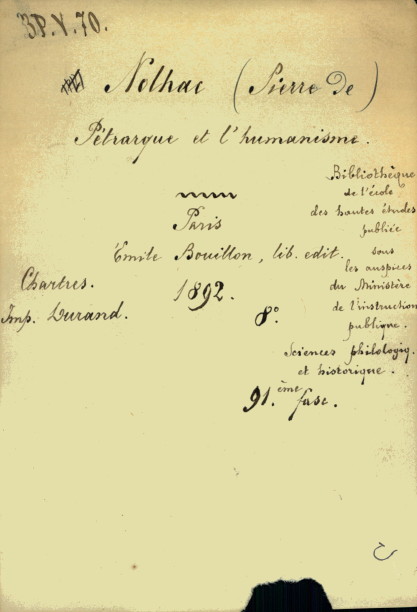 3P.Y.70.
Nolhac (Pierre de)
Pétrarque et l'humanisme.
Bibliothèque
de l'école
des hautes études
publiée
sous
les auspices
du Ministère
de l'instruction
publique.
Sciences philologiq.
et historique.
91.ème fasc.
Paris
Emile Bouillon, lib. edit.
1892.
8°
Chartres.
Imp. Durand.